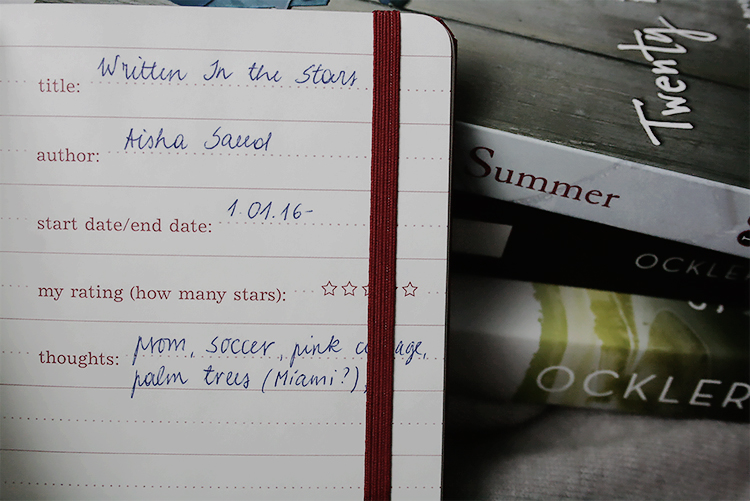 title: Written In the Stars
author: Aisha Saeed
start date/end date: 1.01.16-
my rating (how many stars):
thoughts: prom, soccer, pink
palm trees (Miami?),
Twenty
Summer
OCKLER
OCKLER